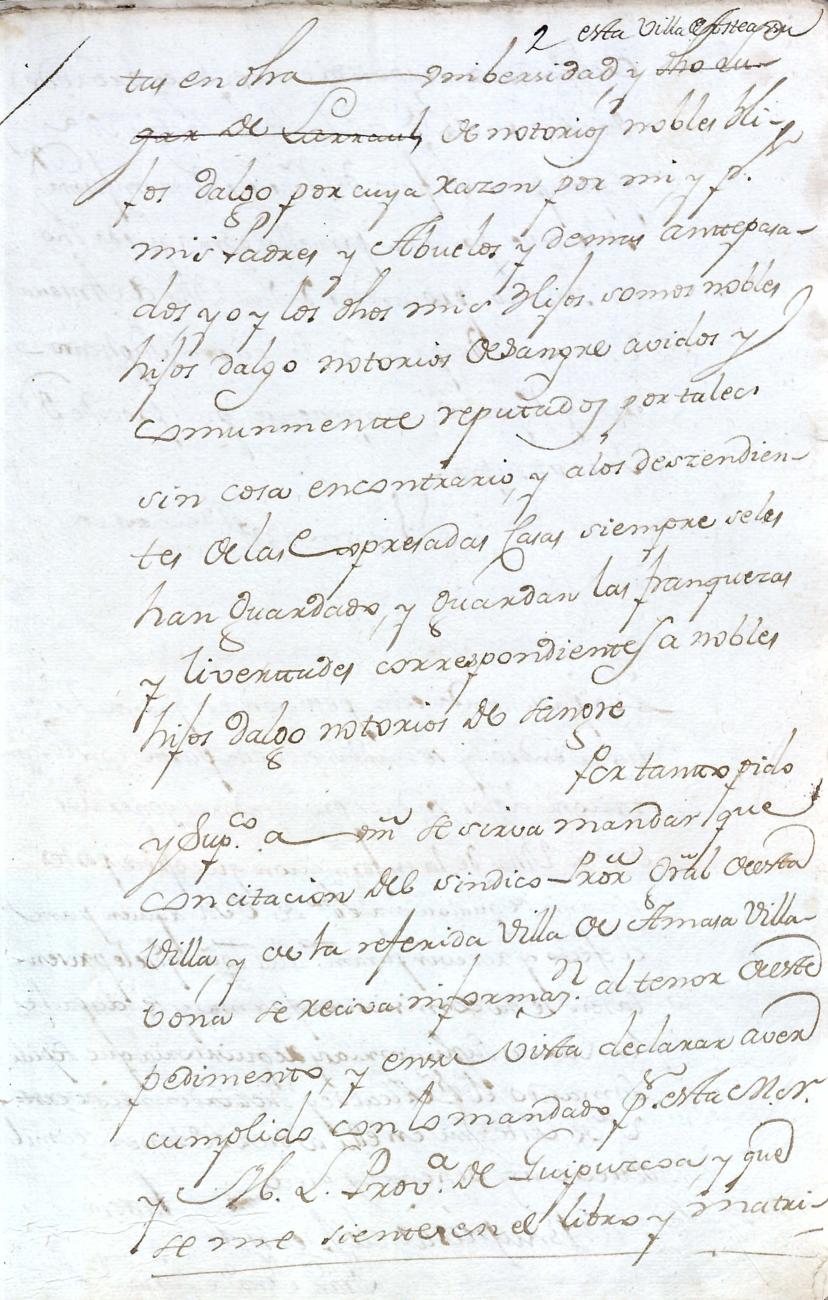 2 esta Villa
tas en dha unibersidad y dho lu-
gar de Larraul, de notorios nobles Hi-
jos dalgo por cuya razon por mi y pr.
mis Padres y Abuelos y demas anttepasa-
dos, yo y los dhos mis Hijos somos nobles
hijos dalgo notorios de Sangre avidos y
comunmentte reputados por tales
sin cosa en contrario, y a los deszendien-
tes de las Expresadas Casas siempre se les
han guardado, y guardan las franquezas
y liverttades correspondientes a nobles
hijos dalgo notorios de sangre
Por tantto pido
y Supco. a Vm se sirva mandar que
con citacion del sindico Pror Gral de esta
Villa y de la referida Villa de Amasa Villa-
vona se reciva informazn. al tenor de este
pedimento, y en su Vista declarar aver
cumplido con lo mandado pr. esta M. N.
y M. L. Prova. de Guipuzcoa, y que
se me siente en el libro y matri-